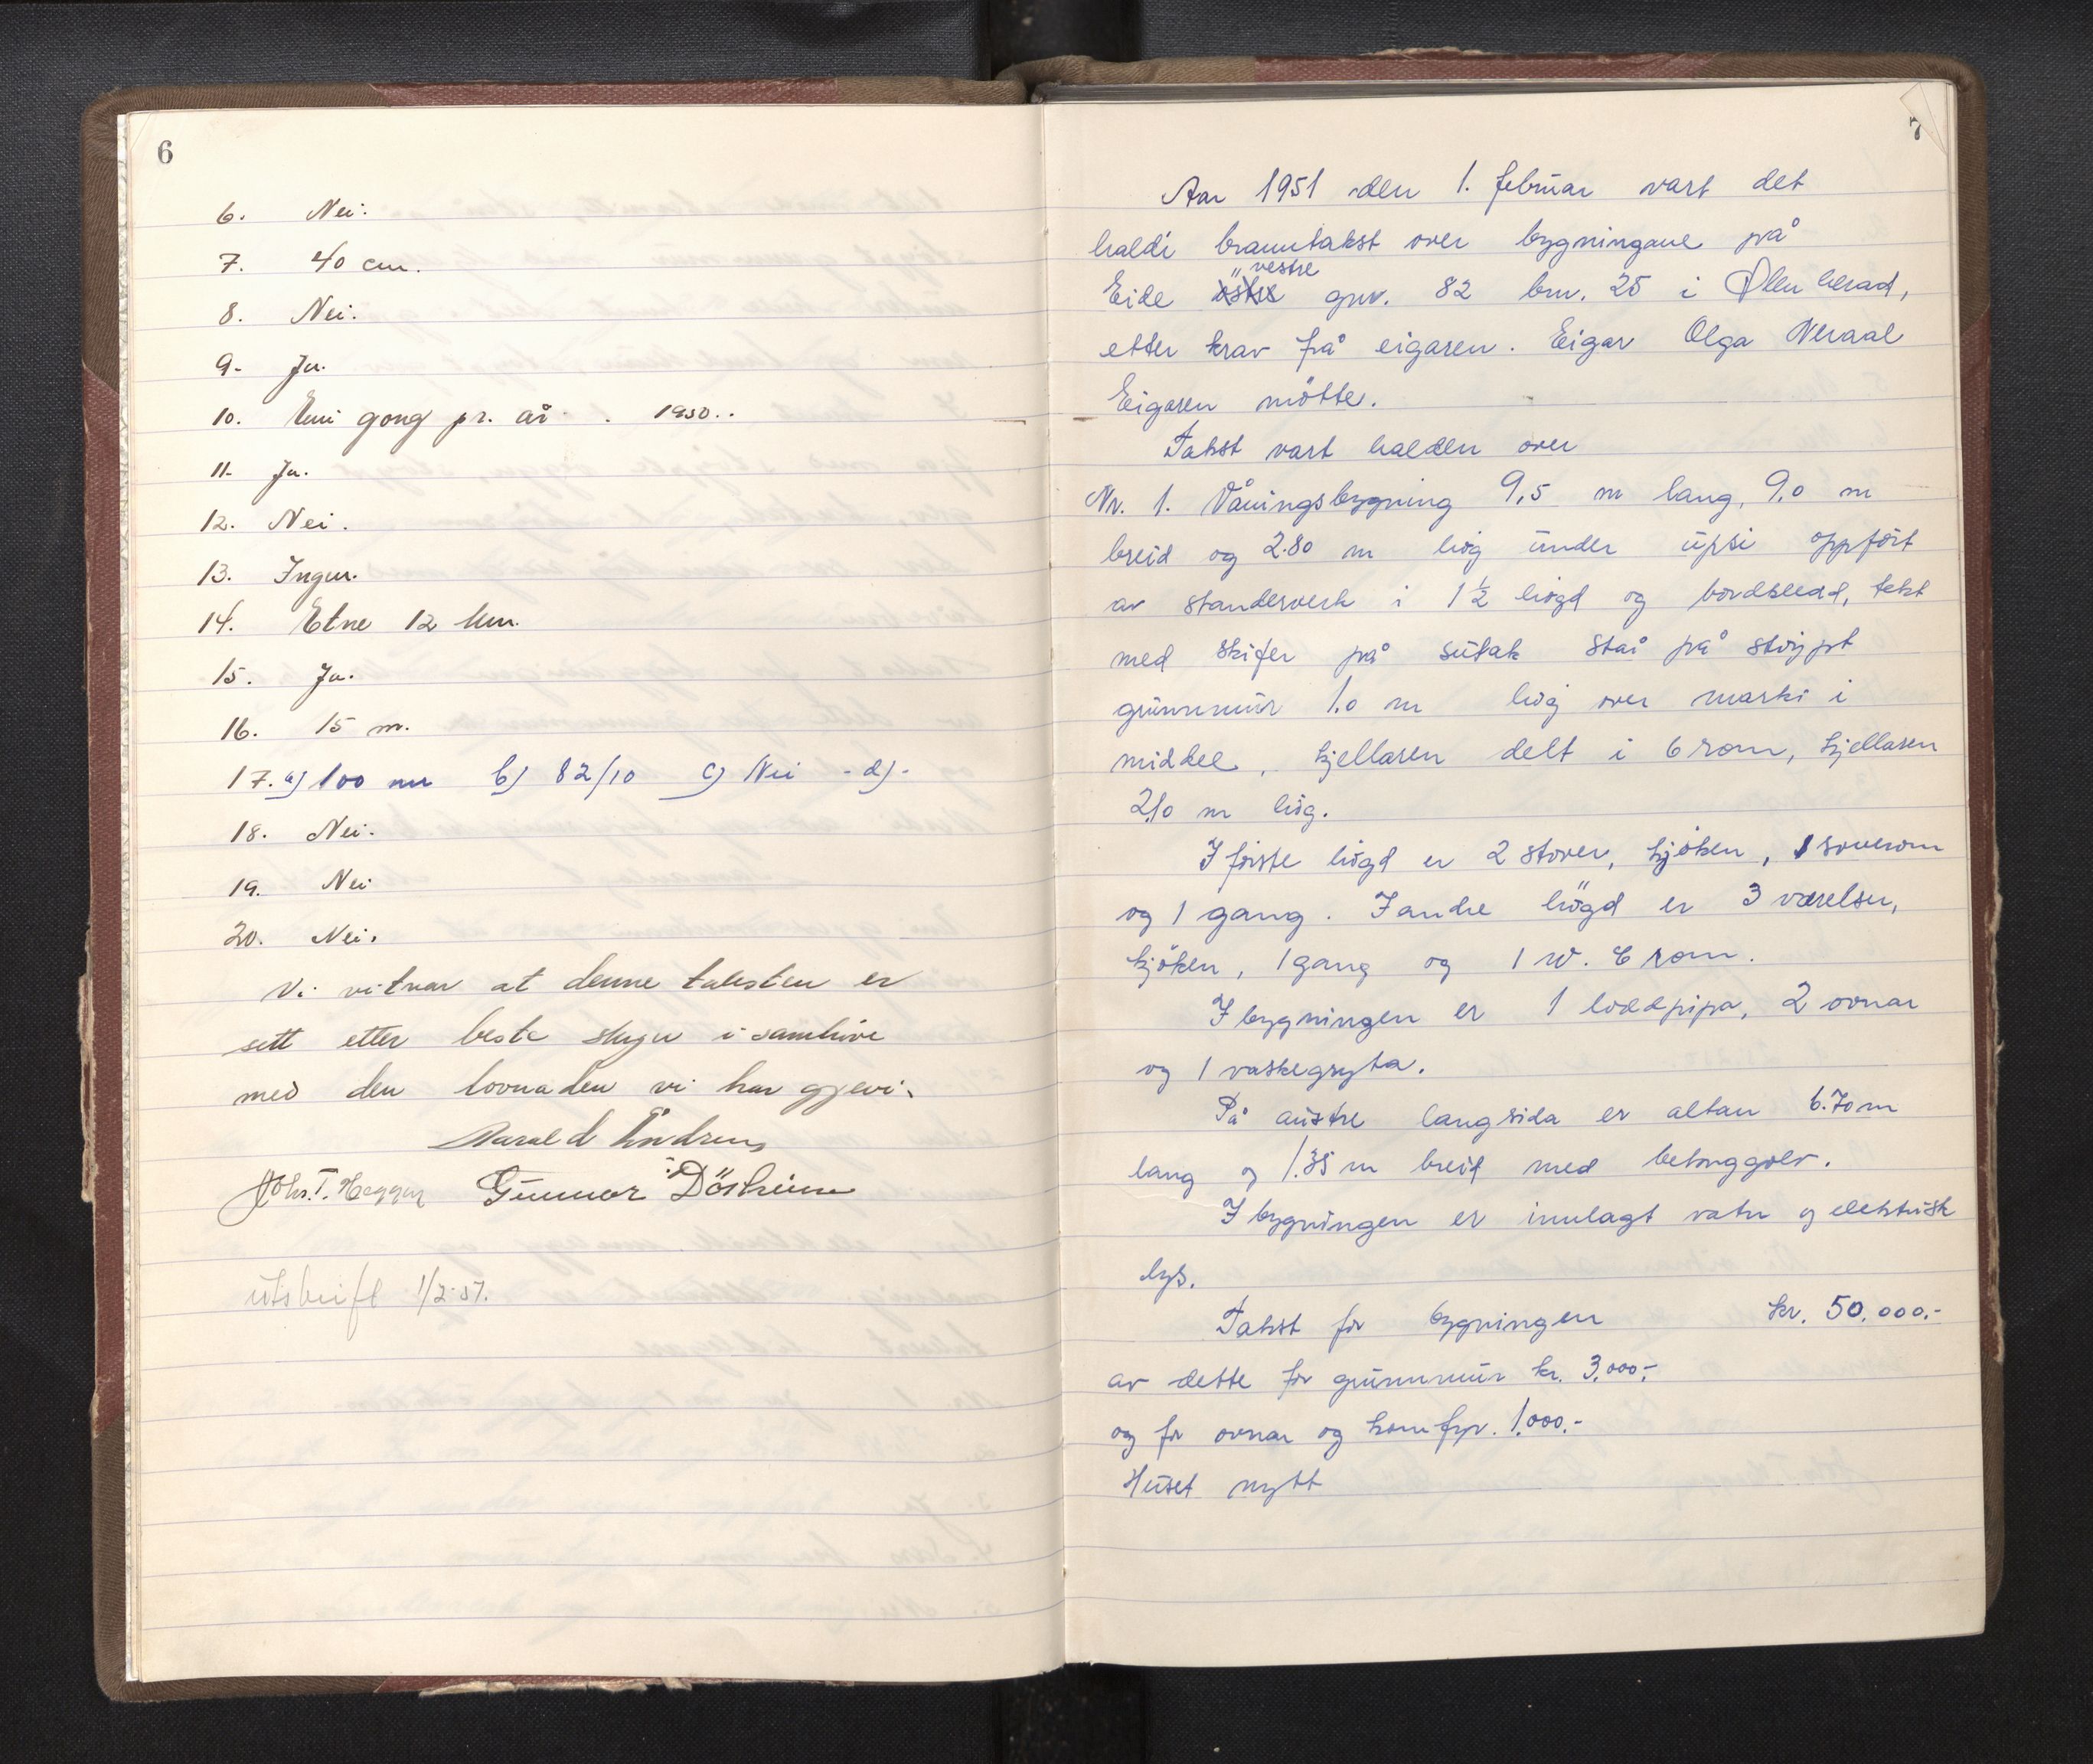 6
6. Nei.
7. 40 cm.
8. Nei.
9- Ja.
10. Ein gong pr. år. 1950..
11- Ja.
12. Nei.
13. Ingen.
14. Etne 12 km.
15. Ja.
16. 15 m.
17. a) 100 m b) 82/10 c) Nei - d) -
18. Nei.
19. Nei
20. Nei.
Vi vitnar at denne taksten er
sett etter beste skjøn i samhøve
med den lovnaden vi har gjevi.
Gunnar Dörheim
utskrift 1/2-51.
7
Aar 1951 den 1. februar vart det
haldi branntakst over bygningane på
vestre
Eide östre gnr. 82 bnr. 25 i Ølen herad,
etter krav frå eigaren. Eigar Olga Neraal
Eigaren mötte.
Takst vart halden over
Nr. 1. Våningsbygning 9,5 m lang, 9,0 m
breid og 2.80 m hög under upsi oppfört
av standerverk i 1½ högd og bordkledd, tekt
med skifer på sutak står på stöypt
grunnmur 1.0 m hög over marki i
middel, kjellaren delt i 6 rom, kjellaren
2,10 m hög.
I förste högd er 2 stover, kjöken, 1 soverom
og 1 gang. I andre högd er 3 værelser,
kjöken, 1 gang og 1 W.C rom.
I bygningen er 1 loddpipa, 2 ovnar
og 1 vaskegryta.
På austre langsida er altan 6.70 m
lang og 1.35 m breid med betonggolv.
I bygningen er innlagt vatn og elektrisk
lys.
Takst for bygningen kr. 50.000.-
av dette for grunnmur kr. 3.000,-
og for ovnar og komfyr. 1.000.-
Huset nytt